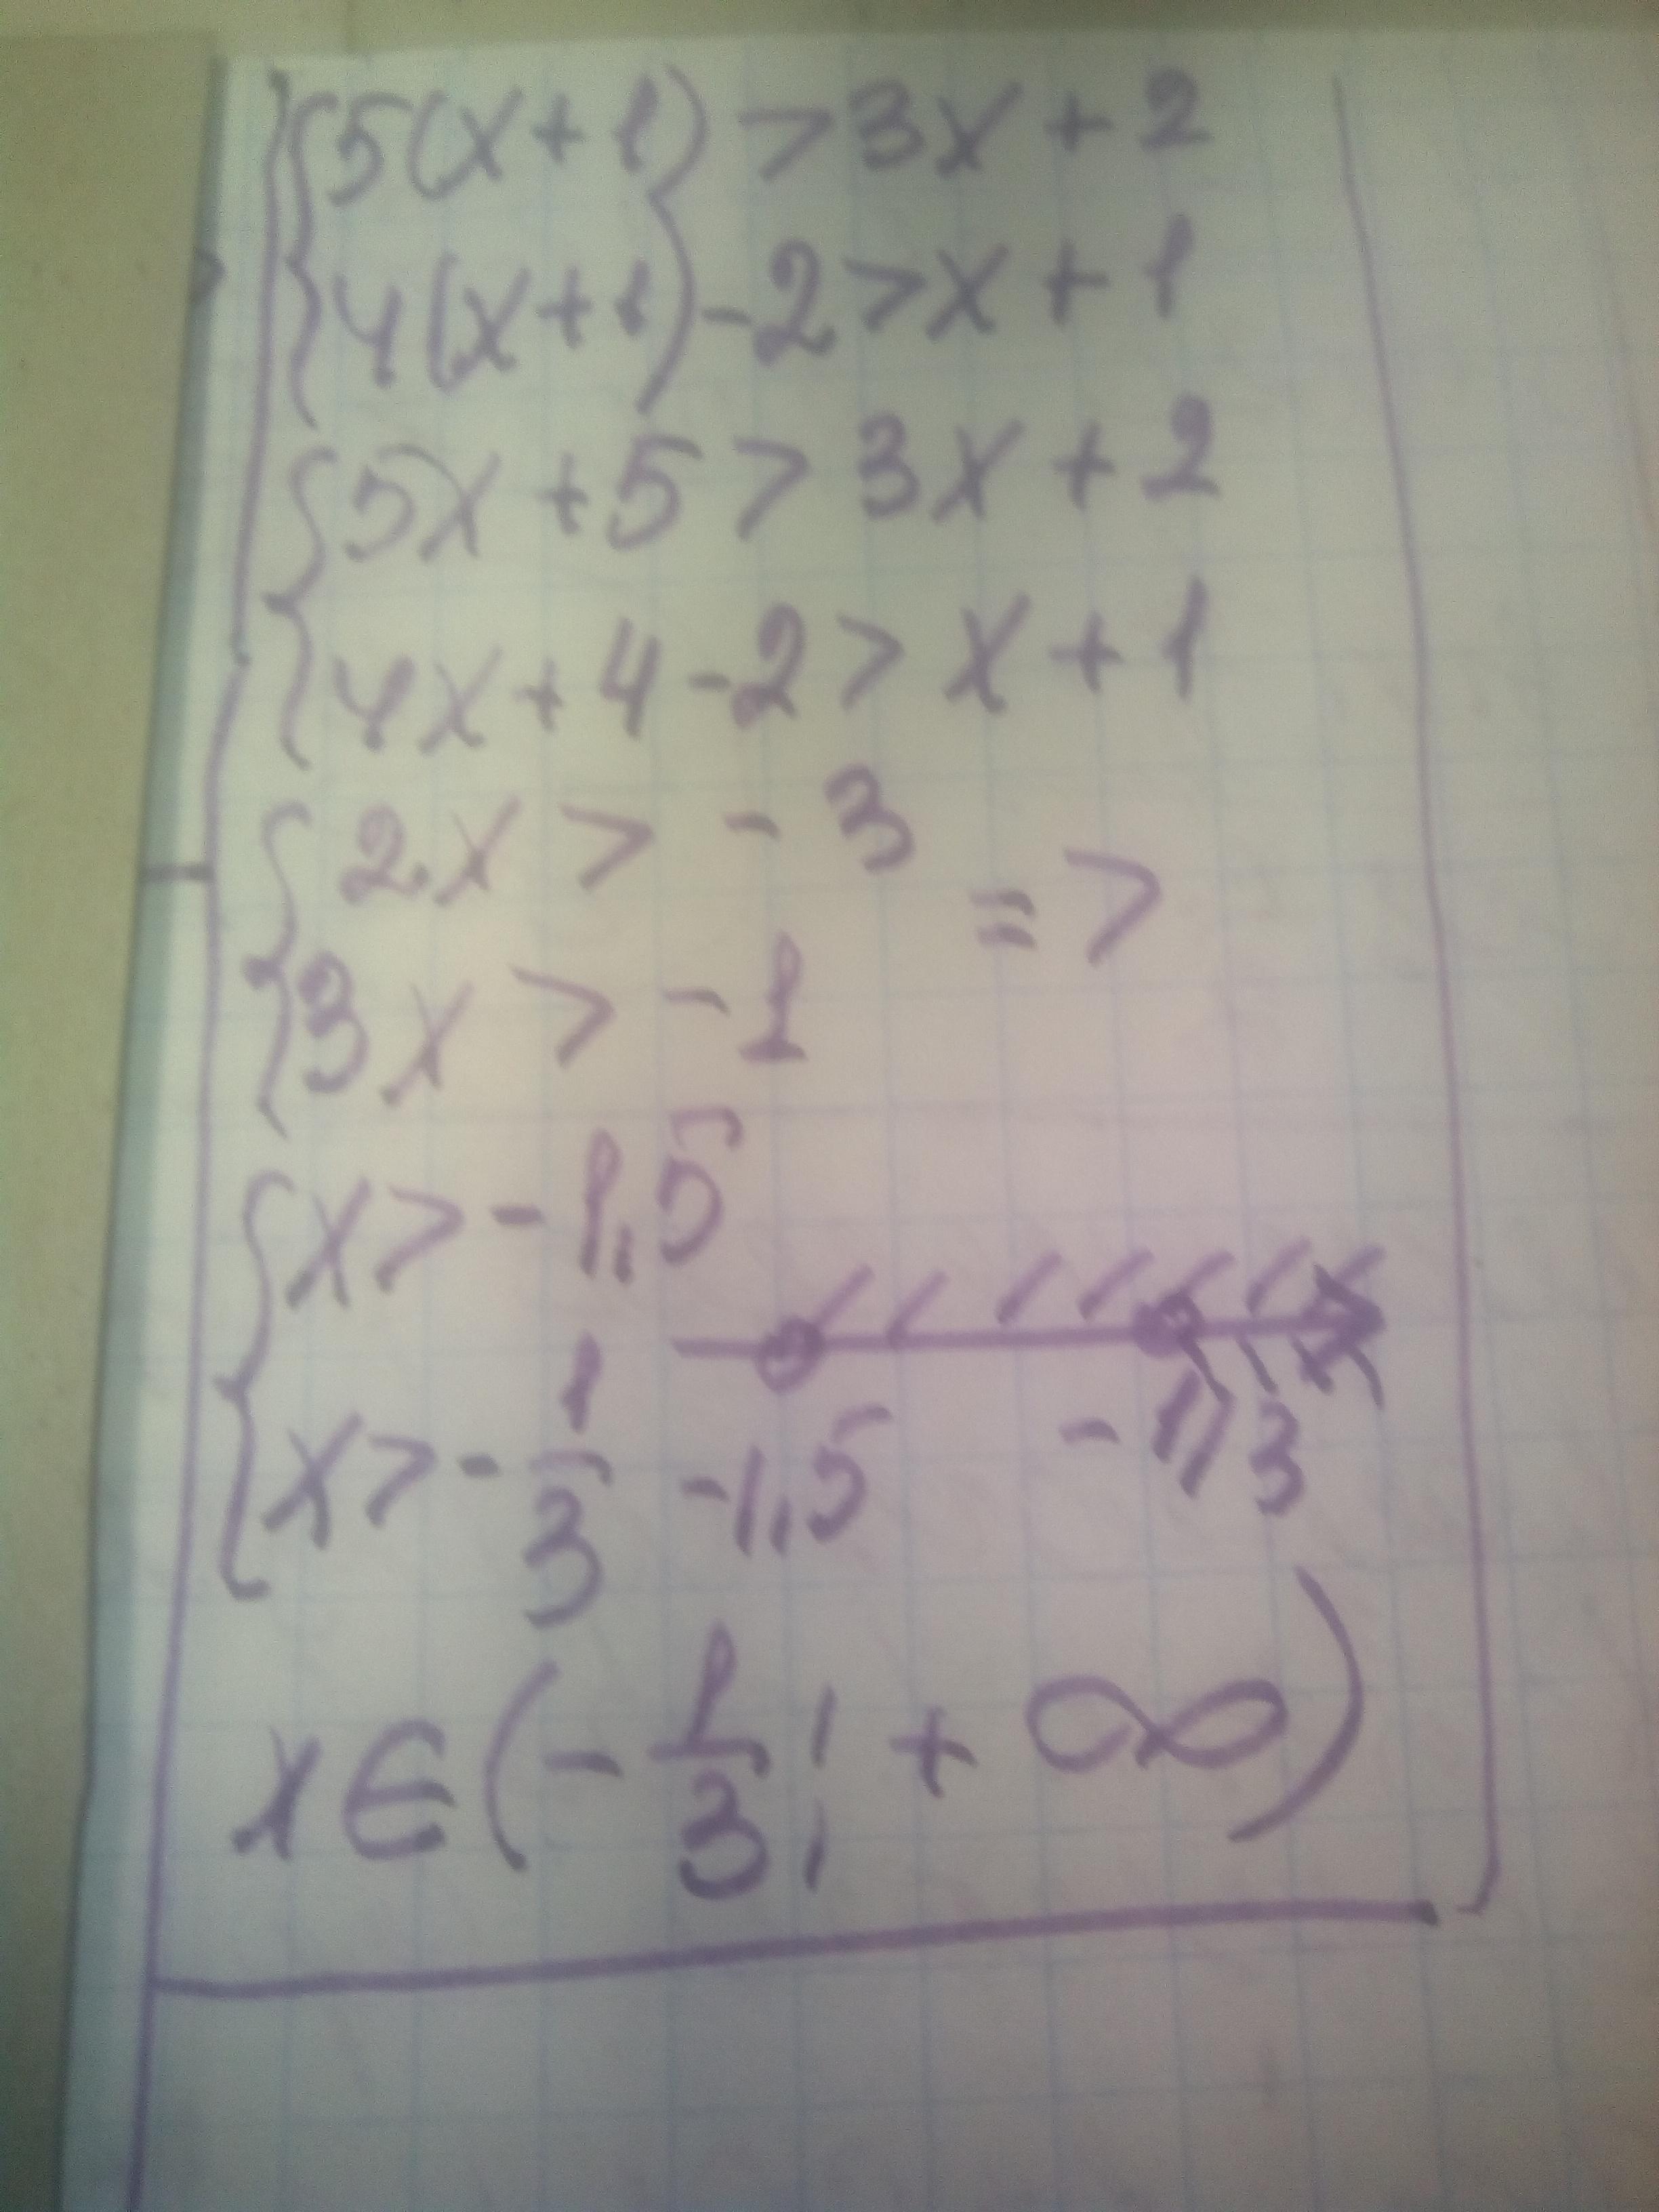 5(x+1) > 3x + 2
4(x+1) - 2 > x + 1
5x + 5 > 3x + 2
4x + 4 - 2 > x + 1
2x > - 3
=>
3x > - 1
x > - 1,5
x > - 1/3
-1,5 - 1/3
x ∈ (- 1/3; + ∞)